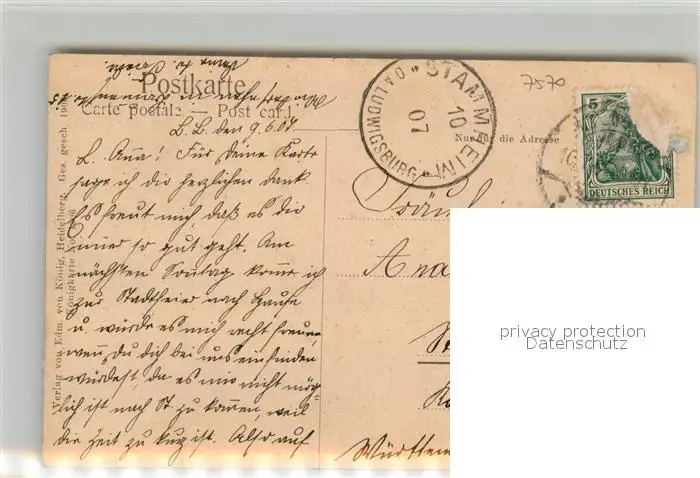 7570
Postkarte
Carte postale — Post card
Nur für die Adresse
STAMMHEIM
OA LUDWIGSBURG
10
07
5
DEUTSCHES REICH
L. B. den 9.6.07
L. Anna! Für Deine Karte
sage ich die herzlichen Dank.
Es freut mich, daß es dir
immer so gut geht. Am
nächsten Sonntag komme ich
zur Stadtfeier nach Hause
u. würde es mich recht freuen,
wenn Du dich bei uns einfinden
würdest, da es mir nicht mög-
lich ist nach St. zu kommen, weil
die Zeit zu kurz ist. Also auf
Fräul
Württem
Verlag von Edm. von König, Heidelberg. Ges. gesch.
Königkarte
privacy protection
Datenschutz